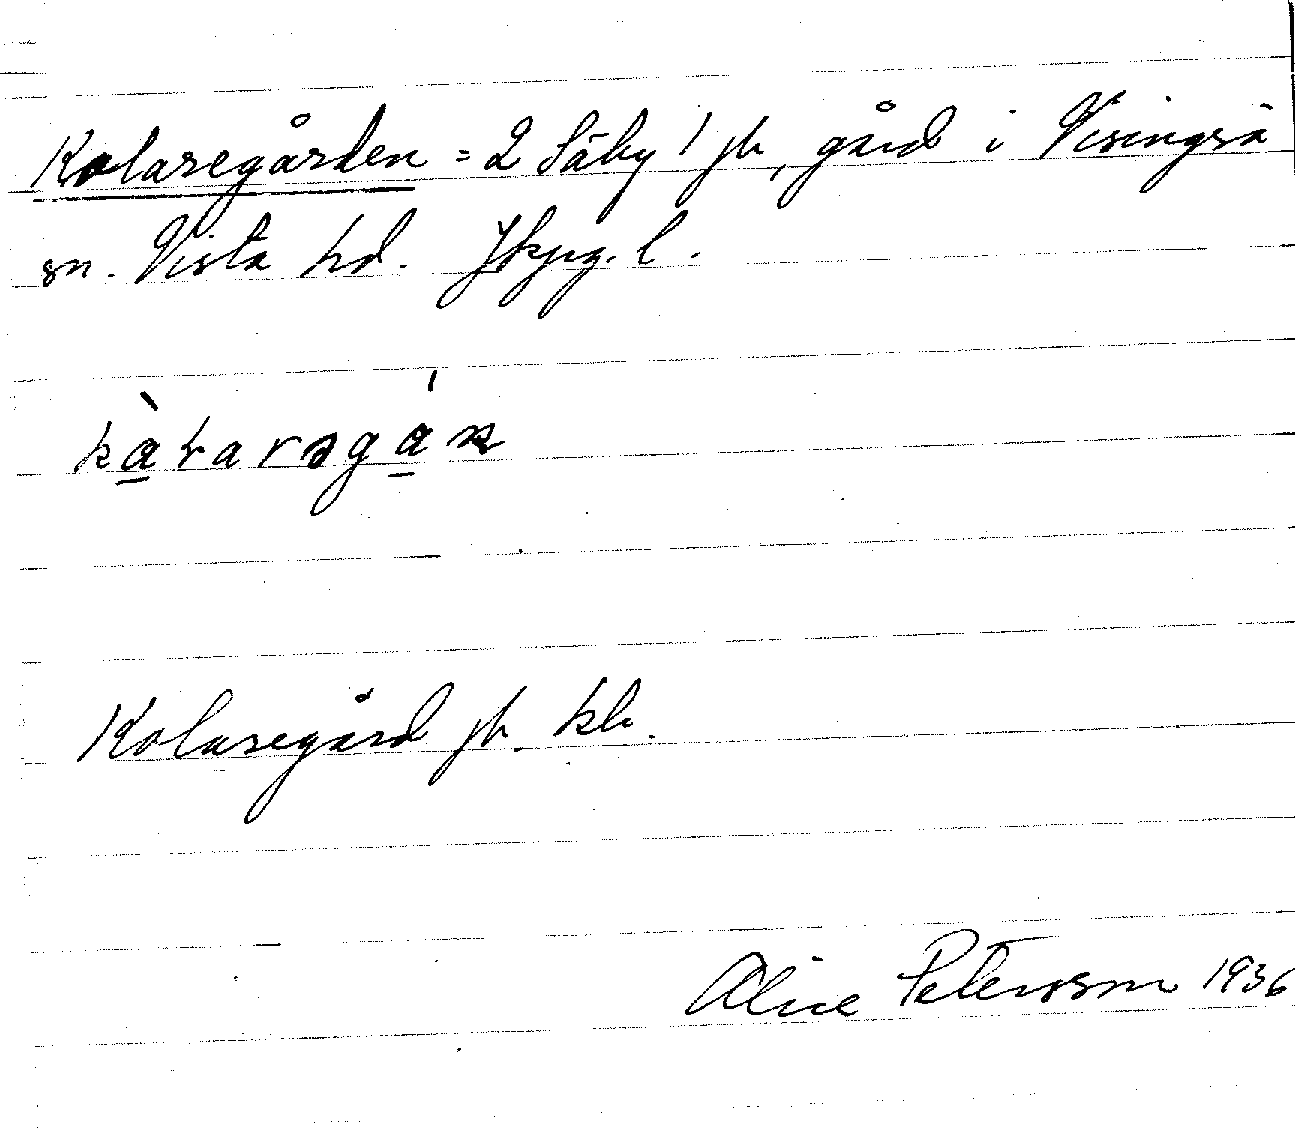 Kolaregården = 2 Säby 1 jb, gård i Visingsö
sn. Vista hd. Jkpg. l.
Kolaregård jb. kb.
Alice Petersson 1936